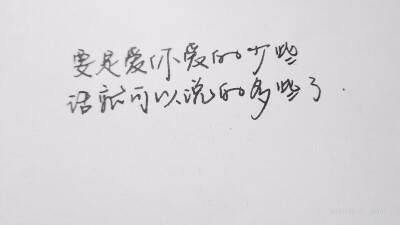 要是爱你爱的少些
话就可以说的多些了.